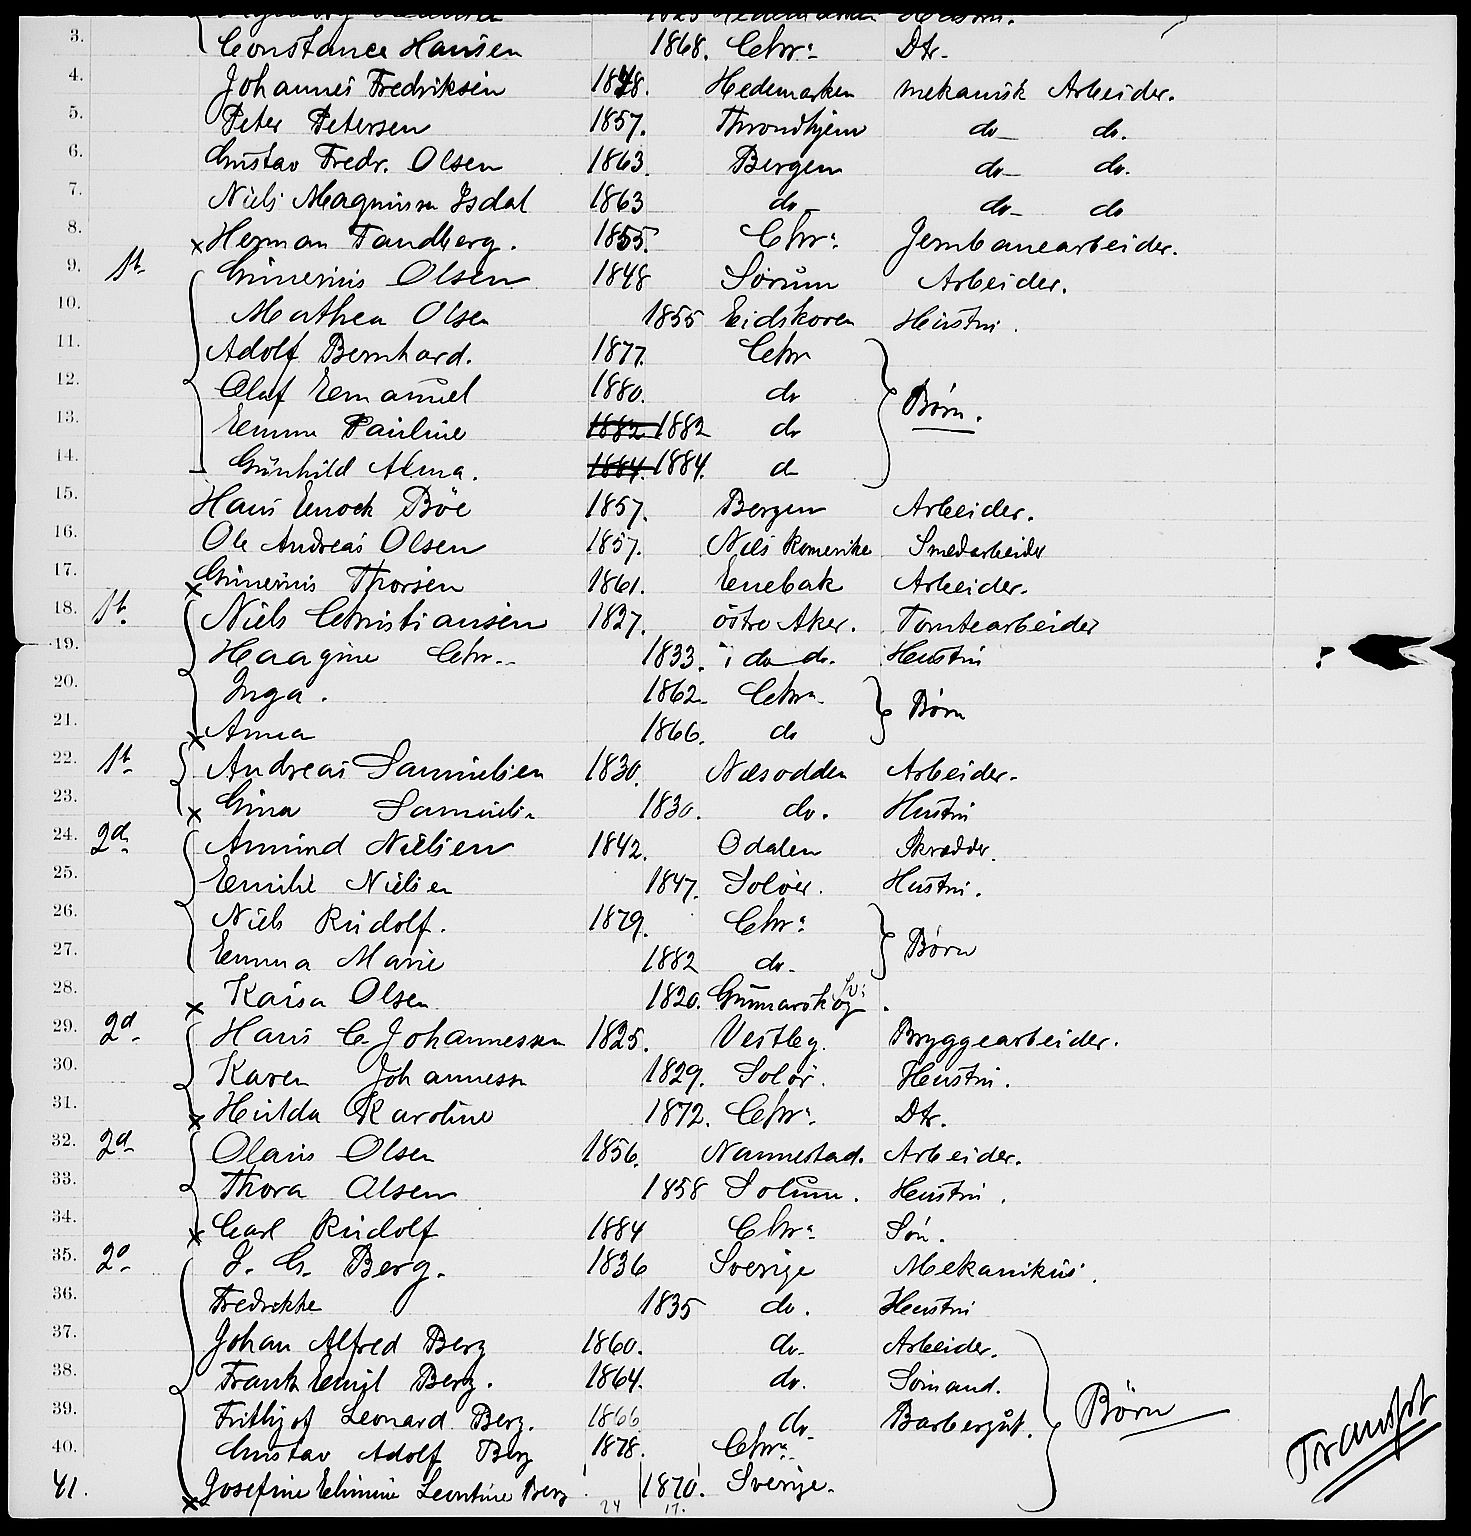 3. Constance Hansen 1868. Chr: Dtr.
4. Johannes Fredriksen 1848. Hedemarken mekanisk Arbeider.
5. Peter Petersen 1857. Throndhjem do do.
6. Gustav Fredr. Olsen 1863. Bergen do do.
7. Niels Magnussen Isdal 1863 do do do
8. x Herman Tandberg. 1855. Chr: Jernbanearbeider.
9. 1st Gunerius Olsen 1848 Sørum Arbeider.
10. Mathea Olsen 1855 Eidskoven Hustru.
11. Adolf Bernhard. 1877. Chr
12. Olaf Emanuel 1880. do Børn.
13. Emma Pauline 1882 1882 do
14. Gunhild Alma. 1884. 1884. do
15. Hans Enoch Böe 1857. Bergen Arbeider.
16. Ole Andreas Olsen 1857. Næs Romerike Smedarbeider
17. x Gunerius Thorsen 1861. Enebak Arbeider.
18. 1st Niels Christiansen 1827. östre Aker. Tomtearbeider
19. Haagine Chr. 1833. i do do. Hustru
20. Inga. 1862. Chra. Børn
21. x Anna 1866. do
22. 1st Andreas Samuelsen 1830. Næsodden Arbeider.
23. x Gina Samuels. 1830. do. Hustru
24. 2d Amund Nielsen 1842. Odalen Skrædder.
25. Emilie Nielsen 1847. Soløer. Hustru.
26. Niels Rudolf. 1879. Chr: Børn
27. Emma Marie 1882 do.
28. x Kaisa Olsen 1820. Gunnarskog Sv:
29. 2d Hans C. Johannessen 1825. Vestby. Bryggearbeider.
30. Karen Johannessen 1829. Solør. Hustru.
31. x Hulda Karoline 1872. Chr: Dtr.
32. 2d Olaus Olsen 1856. Nannestad. Arbeider.
33. Thora Olsen 1858 Solum. Hustru.
34. x Carl Rudolf 1884 Chr: Søn.
35. 2d J. G. Berg. 1836 Sverige Mekanikus.
36. Fredrikke 1835 do. Hustru
37. Johan Alfred Berg 1860. do. Arbeider.
38. Frank Emil Berg. 1864. do. Sømand.
39. Frithjof Leonard Berg. 1866 do. Barbergut. Børn
40. Gustav Adolf Berg 1878. Chra.
41. x Josefine Elimine Leontine Berg 1870. Sverige.
24 17.
Transport